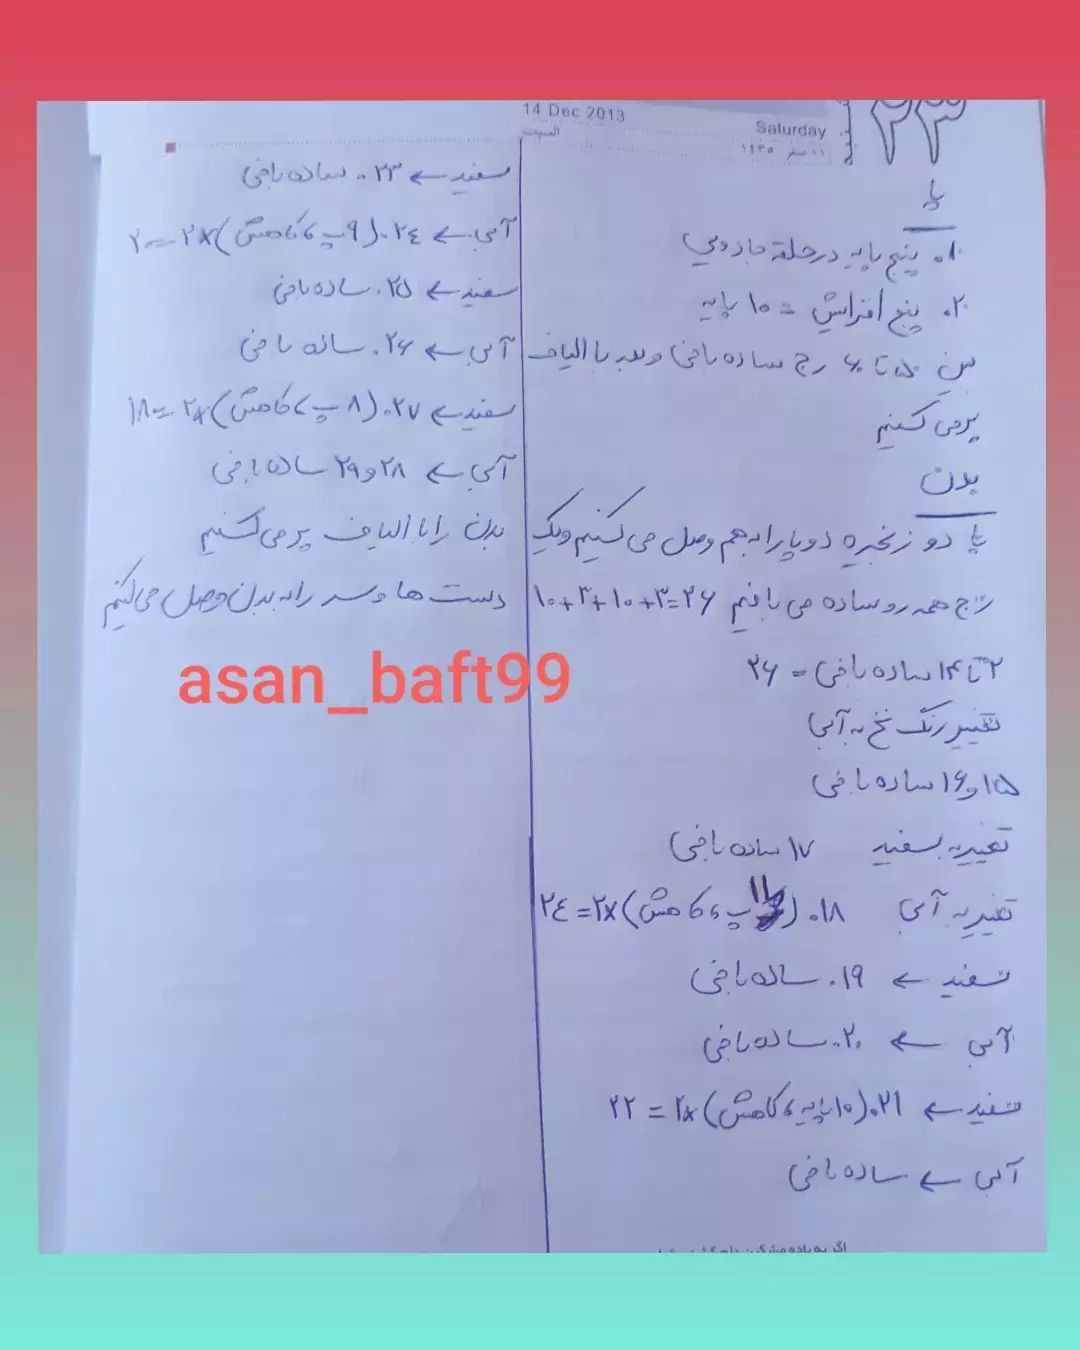 14 Dec 2013
السبت
Saturday
۱۱ صفر ۱۴۳۵
۲۳
پا
۱. پنج پایه در حلقه جادویی
۲. پنج افزایش = ۱۰ پایه
بین ۵ تا ۶ رج ساده بافی و بعد با الیاف
پر می کنیم
بدن
پا دو زنجیره دو پا را به هم وصل می کنیم و یک
رج همه رو ساده می بافیم ۲۶=۳+۱۰+۳+۱۰
۲ تا ۱۴ ساده بافی = ۲۶
تغییر رنگ نخ به آبی
۱۵ و ۱۶ ساده بافی
تغییر به سفید ۱۷ ساده بافی
تغییر به آبی ۱۸. (۱۱ پ، کاهش)×۲=۲۴
سفید ← ۱۹. ساده بافی
آبی ← ۲۰. ساده بافی
سفید ← ۲۱. (۱۰ پایه، کاهش)×۲ = ۲۲
آبی ← ساده بافی
سفید ← ۲۳. ساده بافی
آبی ← ۲۴. (۹ پ، کاهش)×۲ = ۲۰
سفید ← ۲۵. ساده بافی
آبی ← ۲۶. ساده بافی
سفید ← ۲۷. (۸ پ، کاهش)×۲ = ۱۸
آبی ← ۲۸ و ۲۹ ساده بافی
بدن را با الیاف پر می کنیم
دست ها و سر را به بدن وصل می کنیم
asan_baft99